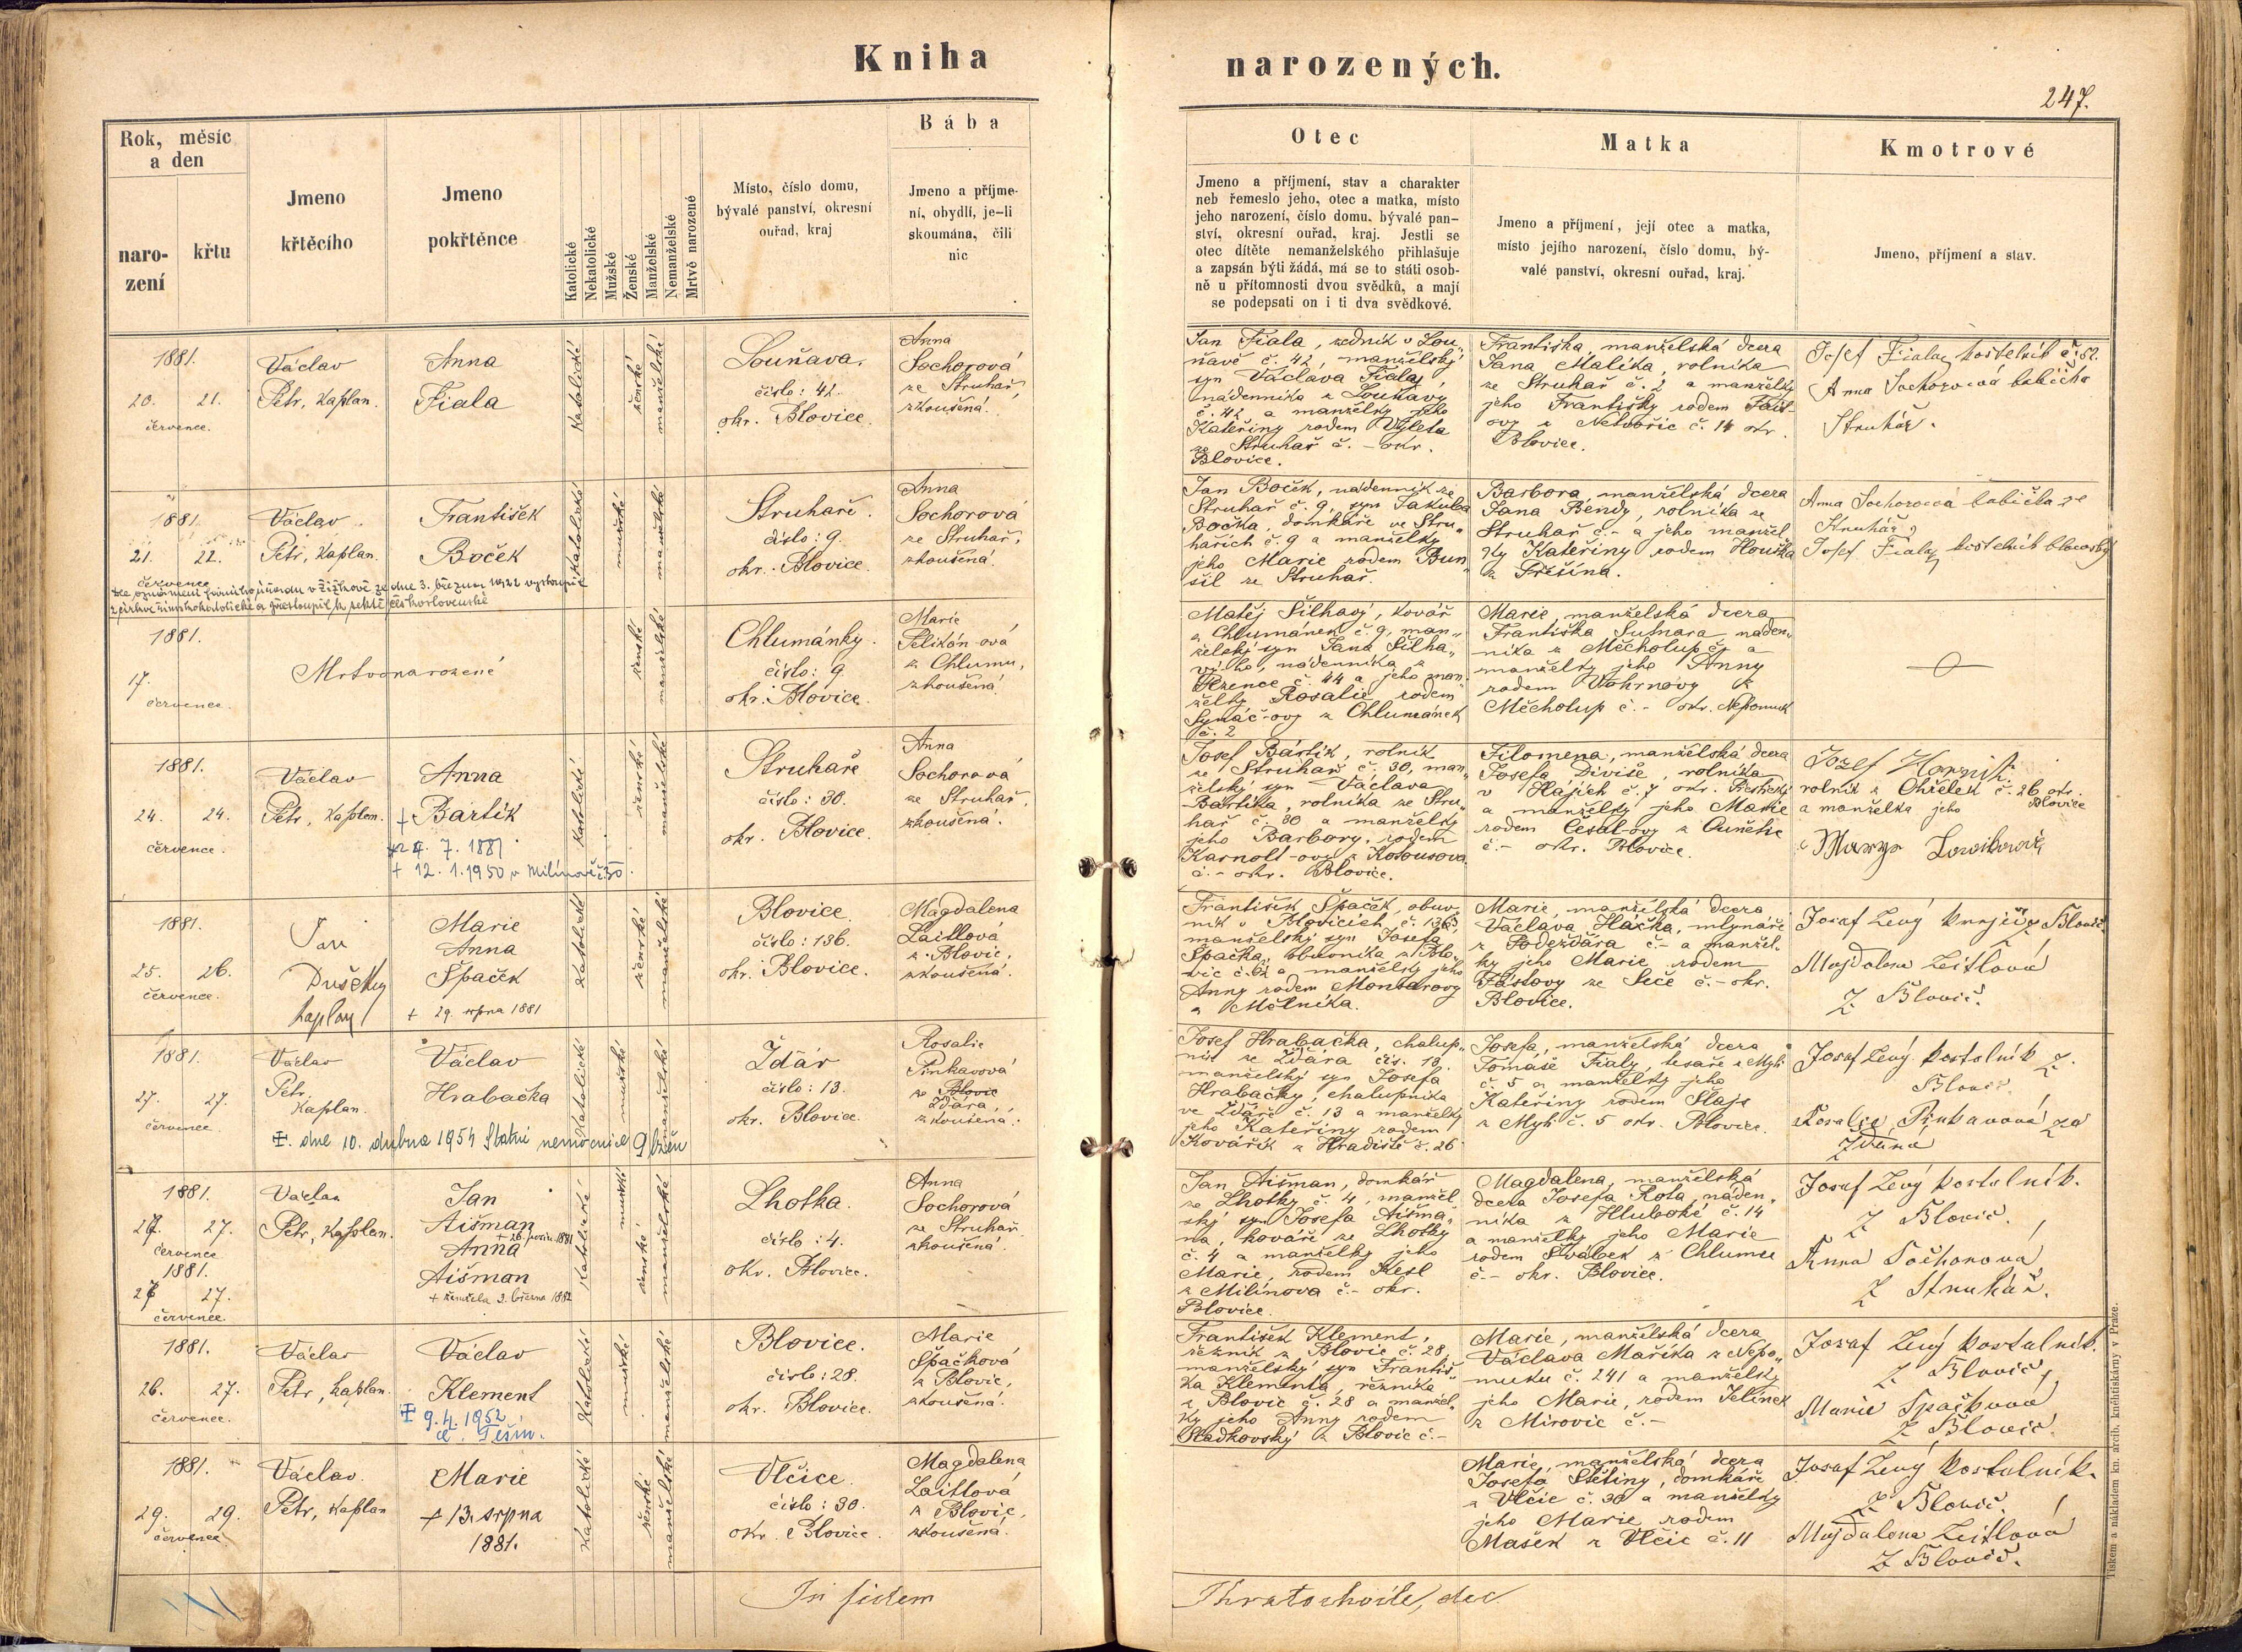 Kniha
narozených.
247.
Rok, měsíc
a den
naro-
zení
křtu
Jmeno
křtěcího
Jmeno
pokřtěnce
Katolické
Nekatolické
Mužské
Ženské
Manželské
Nemanželské
Mrtvě narozené
Místo, číslo domu,
bývalé panství, okresní
ouřad, kraj
Bába
Jmeno a příjme-
ní, obydlí, je-li
skoumána, čili
nic
Otec
Jmeno a příjmení, stav a charakter
neb řemeslo jeho, otec a matka, místo
jeho narození, číslo domu, bývalé pan-
ství, okresní ouřad, kraj. Jestli se
otec dítěte nemanželského přihlašuje
a zapsán býti žádá, má se to státi osob-
ně u přítomnosti dvou svědků, a mají
se podepsati on i ti dva svědkové.
Matka
Jmeno a příjmení, její otec a matka,
místo jejího narození, číslo domu, bý-
valé panství, okresní ouřad, kraj.
Kmotrové
Jmeno, příjmení a stav.
1881.
20. 21.
července.
Václav
Petr, kaplan.
Anna
Fiala
Katolické
ženské
manželské
Louňava.
číslo: 42.
okr. Blovice.
Anna
Sochorová
ze Struhař,
zkoušená.
Jan Fiala, zedník v Lou-
ňavě č. 42, manželský
syn Václava Fialy,
nádenníka z Louňavy
č. 42 a manželky jeho
Kateřiny rodem Výleta
ze Struhař č. - okr.
Blovice.
Františka, manželská dcera
Jana Malíka, rolníka
ze Struhař č. 2 a manželky
jeho Františky rodem
ovy z č. 14 okr.
Blovice.
Josef Fiala, kostelník č. 52.
Anna Sochorová babička
Struhař.
1881.
21. 22.
července
Václav
Petr, kaplan.
František
Boček
Katolické
mužské
manželské
Struhaře.
číslo: 9.
okr. Blovice.
Anna
Sochorová
ze Struhař,
zkoušená.
Jan Boček, nádenník ze
Struhař č. 9, syn Jakuba
Bočka, domkáře ve Stru-
hařích č. 9 a manželky
jeho Marie rodem Bun
šil ze Struhař.
Barbora, manželská dcera
Jana Bendy, rolníka ze
Struhař č. - a jeho manžel-
ky Kateřiny rodem Houška
z Přešína.
Anna Sochorová babička ze
Struhař,
Josef Fiala, kostelník blovický
dle oznámení farního úřadu v Žižkově ze dne 3. března 1922 vystoupil
z církve římskokatolické a přestoupil k sektě československé
1881.
17.
července.
Mrtvonarozené
ženské
manželské
Chlumánky.
číslo: 9
okr. Blovice.
Marie
Pelikán-ová
z Chlumu,
zkoušená.
Matěj Šilhavý, kovář
z Chlumánek č. 9, man-
želský syn Jana Šilha-
výho, nádenníka z
č. 44 a jeho man-
želky Rosalie rodem
Synáč-ovy z Chlumánek
č. 2
Marie, manželská dcera
Františka Sutnara náden-
níka z Měcholup č. a
manželky jeho Anny
rodem z
Měcholup č. - okr. Nepomuk
1881.
24. 24.
července.
Václav
Petr, kaplan.
Anna
+ Bartík
* 24. 7. 1881
+ 12. 1. 1950 v Milínově č. 30.
Katolické
ženské
manželské
Struhaře
číslo: 30.
okr. Blovice.
Anna
Sochorová
ze Struhař,
zkoušená.
Josef Bártík, rolník
ze Struhař č. 30, man-
želský syn Václava
Bartíka, rolníka ze Stru-
hař č. 30 a manželky
jeho Barbory, rodem
Karnolt-ovy z Kotousova
č. - okr. Blovice.
Filomena, manželská dcera
Josefa Diviše, rolníka
v Hájích č. 7 okr. Přeštický
a manželky jeho Marie
rodem Česal-ovy z
č. - okr. Blovice.
Jozef
rolník z č. 26 okr.
Blovice
a manželka jeho
1881.
25. 26.
července.
Jan
Dušek
kaplan
Marie
Anna
Špaček
+ 29. srpna 1881
Katolické
ženské
manželské
Blovice.
číslo: 136.
okr. Blovice.
Magdalena
Laitlová
z Blovic,
zkoušená.
František Špaček, obuv-
ník v Blovicích č. 136,
manželský syn Josefa
Špačka, obuvníka z Blo-
vic č. 62 a manželky jeho
Anny rodem Montarovy
z Mělníka.
Marie, manželská dcera
Václava Hlačka, mlynáře
z Podežďára č. - a manžel-
ky jeho Marie rodem
Fastovy ze Seče č. - okr.
Blovice.
Josef Levý krejčí z Blovic
Majdalena Leitlová
z Blovic.
1881.
27. 27.
července.
Václav
Petr,
kaplan.
Václav
Hrabačka
Katolické
mužské
manželské
Ždár
číslo: 13.
okr. Blovice.
Rosalie
Pinkavová
ze Blovic
Ždára,
zkoušená.
+. dne 10. dubna 1954 Státní nemocnice Plzeň
Josef Hrabačka, chalup-
ník ze Ždára čís. 13
manželský syn Josefa
Hrabačky, chalupníka
ve Ždáře č. 13 a manželky
jeho Kateřiny rodem
Kovářík z Hradiště č. 26
Josefa, manželská dcera
Tomáše Fialy, tesaře z Mytí
č. 5 a manželky jeho
Kateřiny rodem Šlajs
z Mytí č. 5 okr. Blovice.
Josef Levý kostelník z
Blovic,
Rosalie Pinkavová ze
Ždára
1881.
27. 27.
července
1881.
27. 27.
července.
Václav
Petr, kaplan.
Jan
Aišman
Anna
Aišman
+ zemřela 2. března 1882
Katolické
mužské
ženské
manželské
Lhotka.
číslo: 4.
okr. Blovice.
Anna
Sochorová
ze Struhař
zkoušená.
Jan Aišman, domkář
ze Lhotky č. 4, manžel
ský syn Josefa Aišma-
na, kováře ze Lhotky
č. 4 a manželky jeho
Marie, rodem Kesl
z Milínova č. - okr.
Blovice.
Magdalena, manželská
dcera Josefa Rota, náden-
níka z Hluboké č. 14
a manželky jeho Marie
rodem Švábek z Chlumu
č. - okr. Blovice.
Josef Levý kostelník.
z Blovic,
Anna Sochorová
z Struhař.
1881.
26. 27.
července.
Václav
Petr, kaplan.
Václav
Klement
+ 9. 4. 1952
č. Těšín.
Katolické
mužské
manželské
Blovice.
číslo: 28.
okr. Blovice.
Marie
Špačková
z Blovic,
zkoušená.
František Klement,
řezník z Blovic č. 28,
manželský syn Františ-
ka Klementa, řezníka
z Blovic č. 28 a manžel-
ky jeho Anny rodem
Sladkovský z Blovic č. -
Marie, manželská dcera
Václava Maříka z Nepo-
muku č. 241 a manželky
jeho Marie, rodem Jelínek
z Mirovic č. -
Josef Levý kostelník.
z Blovic,
Marie Špačková
z Blovic.
1881.
29. 29.
července.
Václav
Petr, kaplan
Marie
+ 13. srpna
1881.
Katolické
ženské
manželské
Vlčice.
číslo: 30.
okr. Blovice.
Magdalena
Laitlová
z Blovic,
zkoušená.
Marie, manželská dcera
Josefa Štětiny, domkáře
z Vlčic č. 30 a manželky
jeho Marie rodem
Mašek z Vlčic č. 11
Josef Levý kostelník.
z Blovic,
Majdalena Leitlová
z Blovic.
In fidem
děc
Tiskem a nákladem kn. arcib. knihtiskárny v Praze.